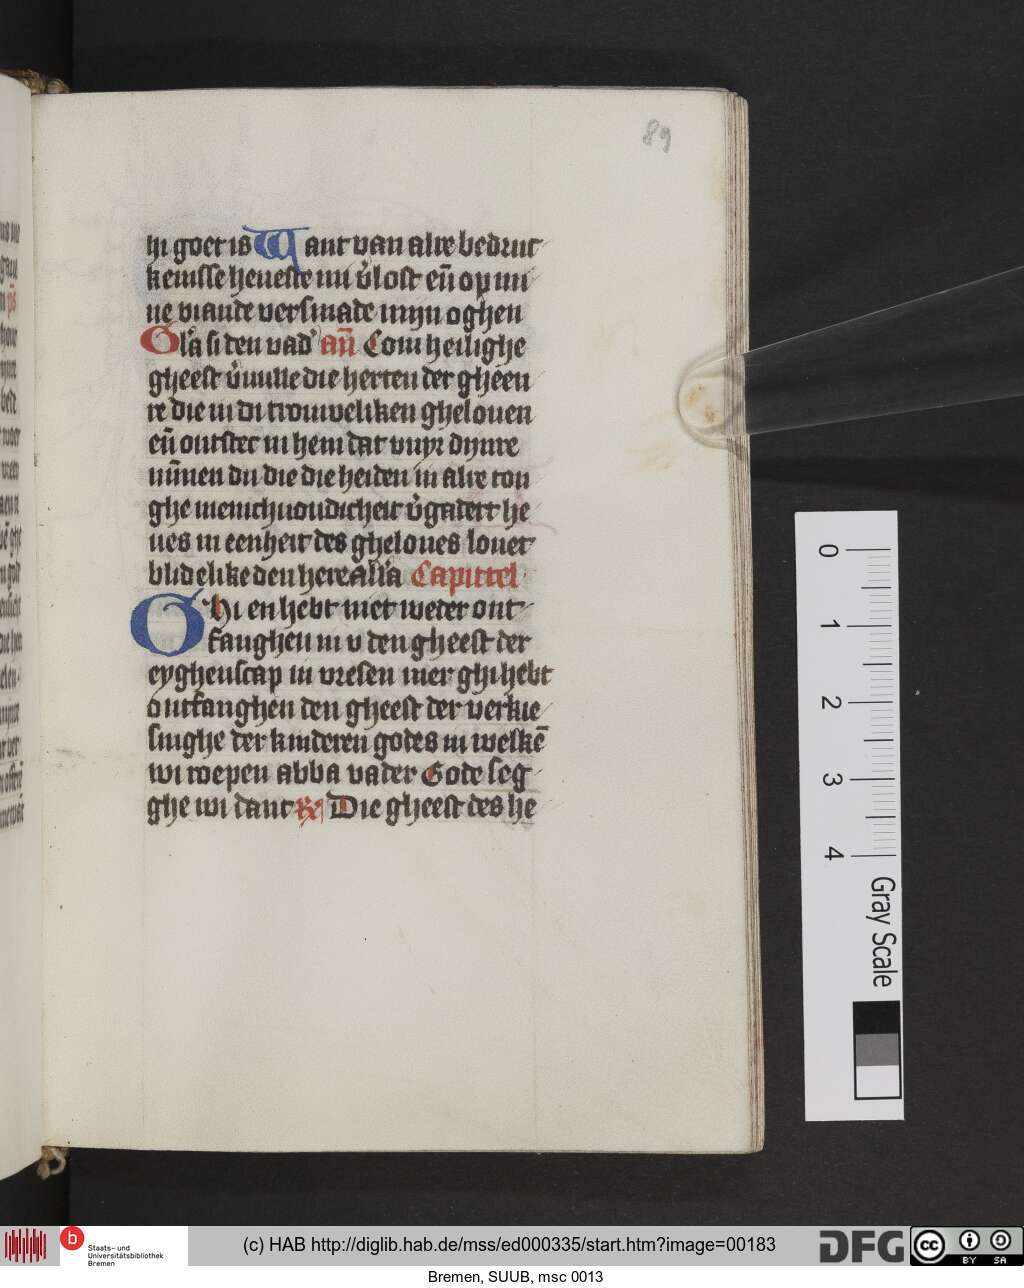 89
hi goet is Want van alre bedruc
kenisse heueste mi v̕lost eñ op mi
ne viande versmade mijn oghen
Gl'a si den vad' añ Com heilighe
gheest v̕uulle die herten der gheen
re die in di trouweliken ghelouen
eñ ontstec in hem dat vuyr dijnre
mīnen du die die heiden in alre ton
ghe menichuoudicheit v̕gadert he
ues in eenheit des gheloues louet
blidelike den here all'a Capittel
Ghi en hebt niet weder ont
fanghen in v den gheest der
eyghenscap in vresen mer ghi hebt
ontfanghen den gheest der verkie
singhe der kinderen godes in welkē
wi roepen abba vader Gode seg
ghe wi danc R Die gheest des he
0
1
2
3
4
Gray Scale
b
Staats- und
Universitätsbibliothek
Bremen
(c) HAB http://diglib.hab.de/mss/ed000335/start.htm?image=00183
DFG
cc
BY SA
Bremen, SUUB, msc 0013